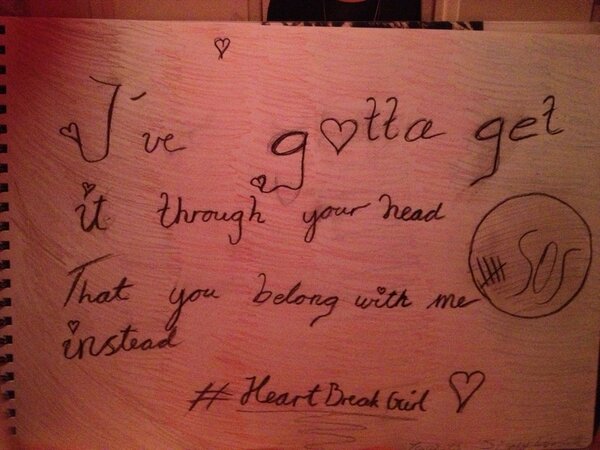 I've gotta get
it through your head
SOS
That you belong with me
instead
#HeartBreakGirl